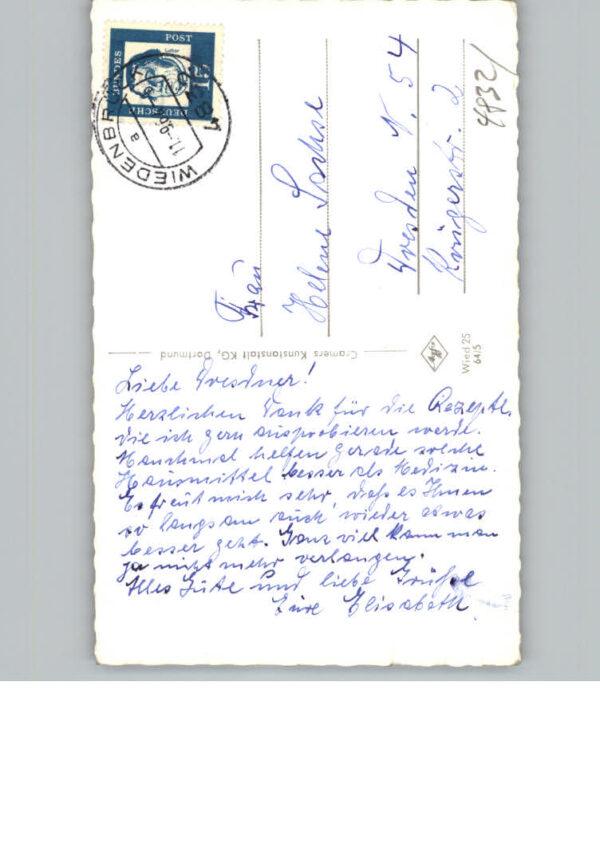 Liebe Dresdner!
Herzlichen Dank für die Rezepte,
die ich gern ausprobieren werde.
Manchmal helfen gerade solche
Hausmittel besser als Medizin.
Es freut mich sehr, daß es Ihnen
so langsam auch wieder etwas
besser geht. Ganz viel kann man
ja nicht mehr verlangen.
Alles Gute und liebe Grüße
Eure Elisabeth
Frau
Helene Sachse
Dresden N. 54
Krügerstr. 2
4832/
Cramers Kunstanstalt KG, Dortmund
Wied 25
64/5
DEUTSCHE
BUNDES
POST
15
Luther
WIEDENBRÜCK